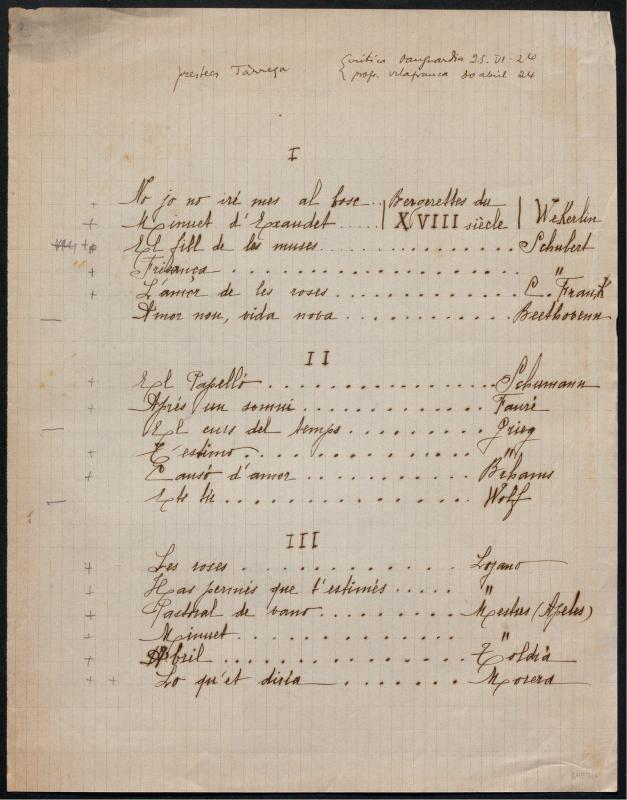 crítica Vanguardia 25. VI. 24
Tàrrega
progr. Vilafranca 30 abril 24
I
No jo no iré mes al bosc . . Bergerettes du
Minuet d'Exaudet . . . . . XVIII siècle Wekerlin
El fill de les muses . . . . . . . . . . . . . . Schubert
Frisança . . . . . . . . . . . . . . . . . . . . "
L'amor de les roses . . . . . . . . . . . . . C. Frank
Amor nou, vida nova . . . . . . . . . . . . Beethovenn
II
El Papelló . . . . . . . . . . . . . . . . Schumann
Aprés un somni . . . . . . . . . . . . . Fauré
El curs del temps . . . . . . . . . . Grieg
T'estimo . . . . . . . . . . . . . . . . "
Cansó d'amor . . . . . . . . . . . . Brhams
Ets tu . . . . . . . . . . . . . . . . . Wolf
III
Les roses . . . . . . . . . . . . Lozano
Has permés que t'estimés . . . . . "
Pastoral de vano . . . . . . . . . Mestres (Apeles)
Minuet . . . . . . . . . . . . . . . "
Abril . . . . . . . . . . . . . . . . . Toldrà
Lo qu'et diria . . . . . . . . Morera